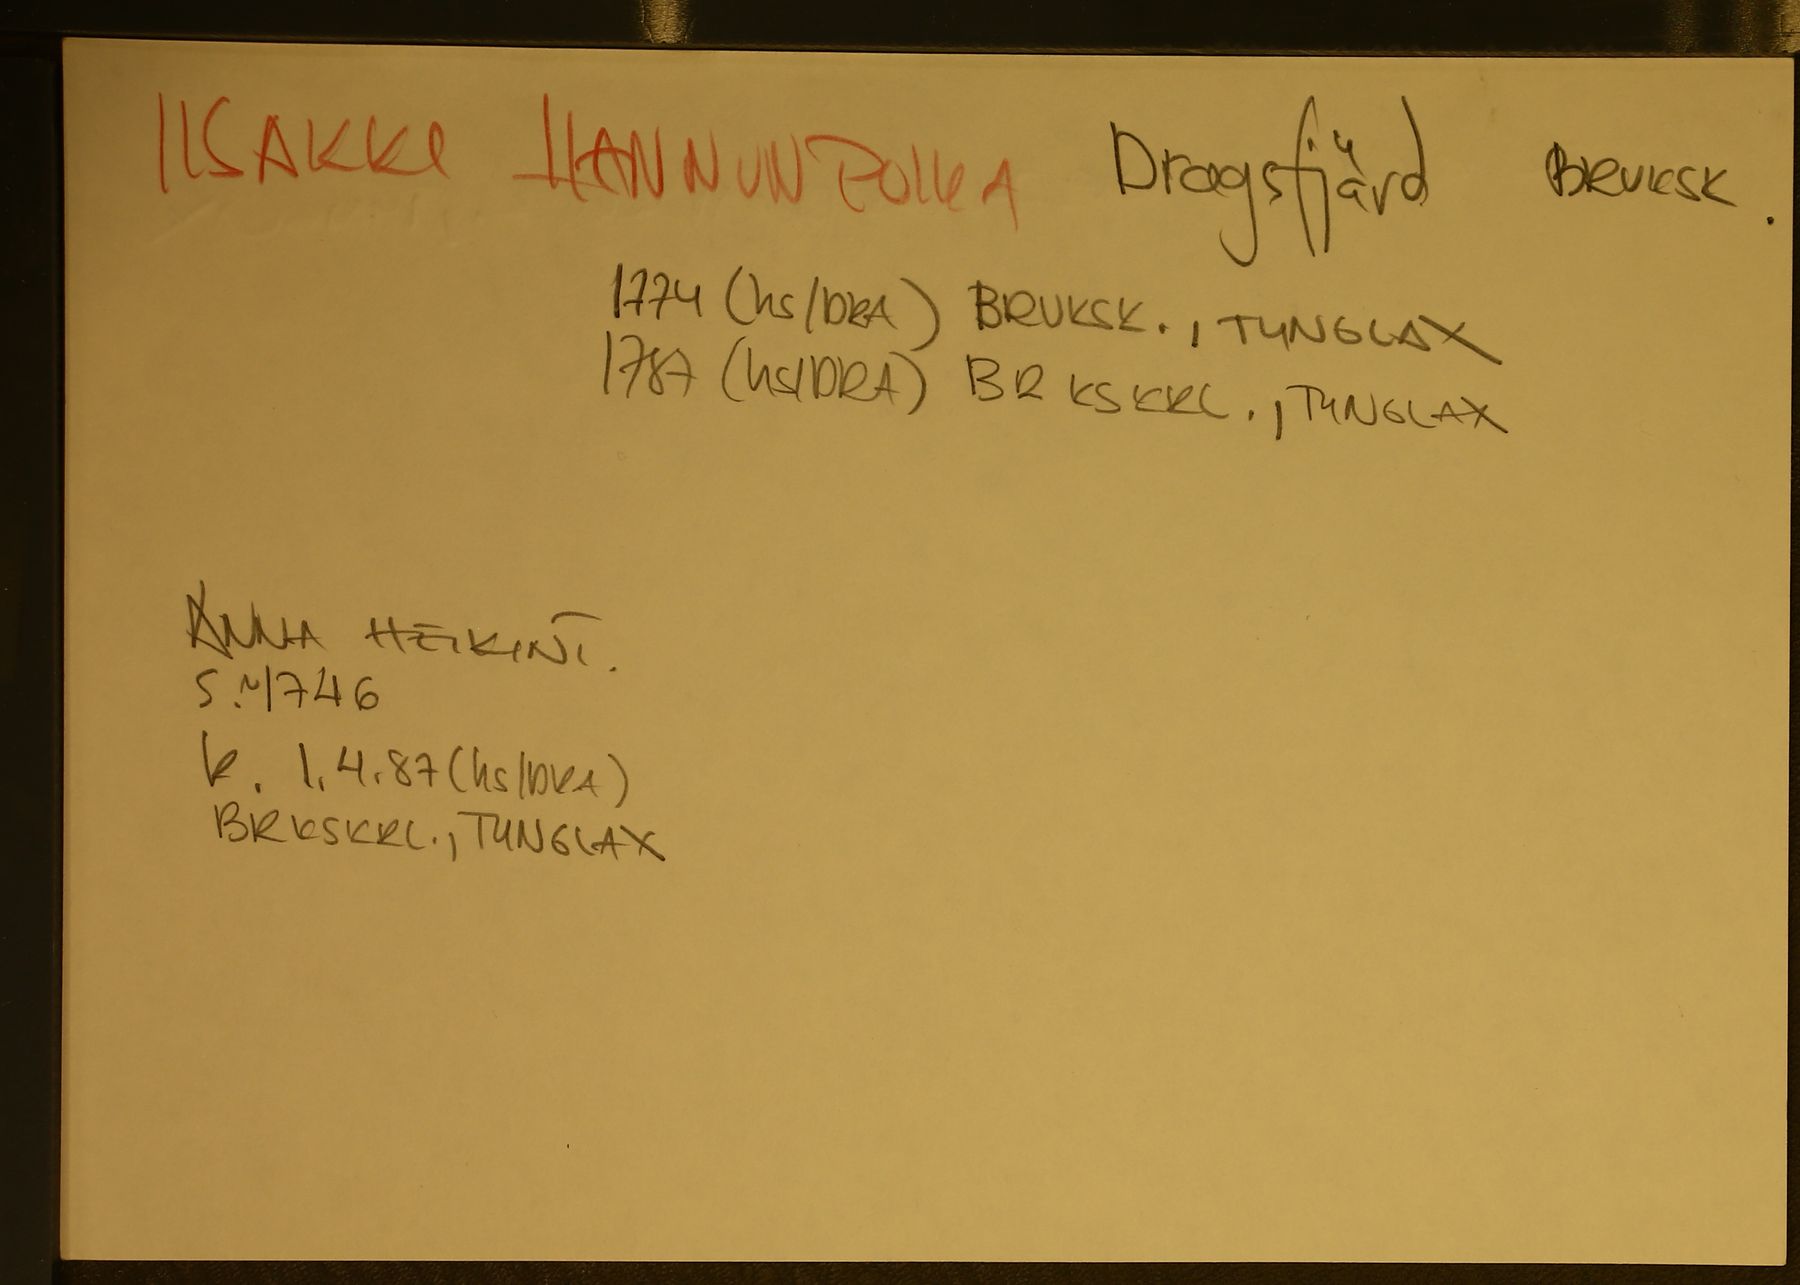 IISAKKI HANNUNPOIKA Dragsfjärd BRUKSK.
1774 (hs/DRA) BRUKSK., TYNGLAX
1787 (hs/DRA) BRKSKRL., TYNGLAX
ANNA HEIKINT.
S. ~1746
k. 1.4.87 (hs/DRA)
BRKSKRL., TYNGLAX